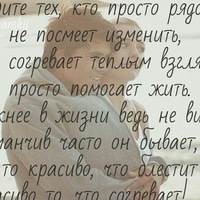 ите тех, кто просто рядо
не посмеет изменить,
согревает теплым взгля
просто помогает жить.
жнее в жизни ведь не ви
манчив часто он бывает,
то красиво, что блестит
асиво то, что согревает!